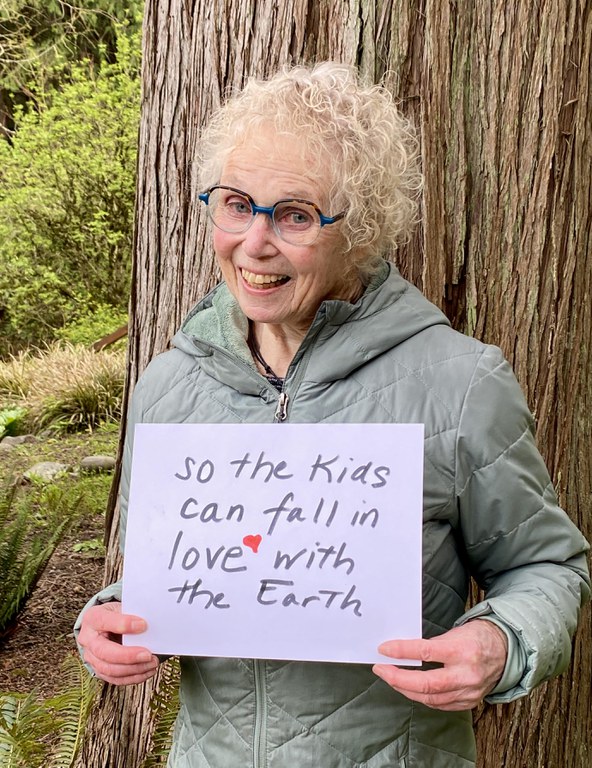 so the Kids
can fall in
love with
the Earth